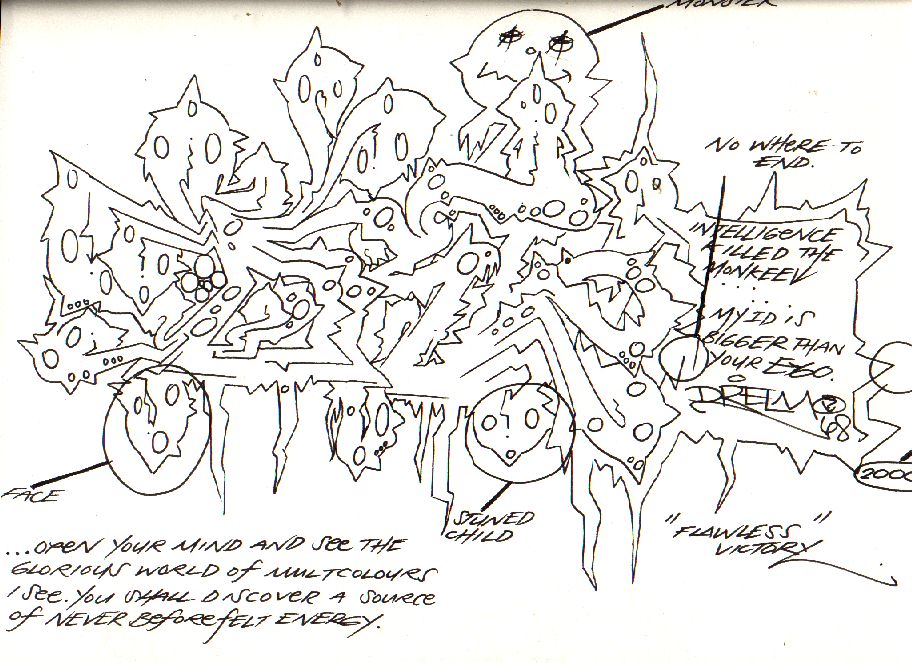 MONSTER
NO WHERE TO
END.
INTELLIGENCE
KILLED THE
MONKEEY
......
MY ID IS
BIGGER THAN
YOUR EGO.
'68
2000
FACE
STUNED
CHILD
"FLAWLESS"
VICTORY
...OPEN YOUR MIND AND SEE THE
GLORIOUS WORLD OF MULTCOLOURS
I SEE. YOU SHALL DISCOVER A SOURCE
OF NEVER BEFORE FELT ENERGY.